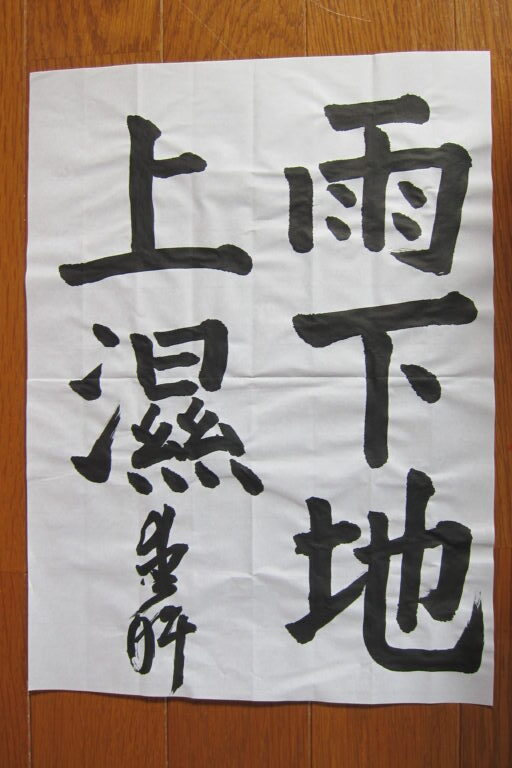 雨下地
上濕